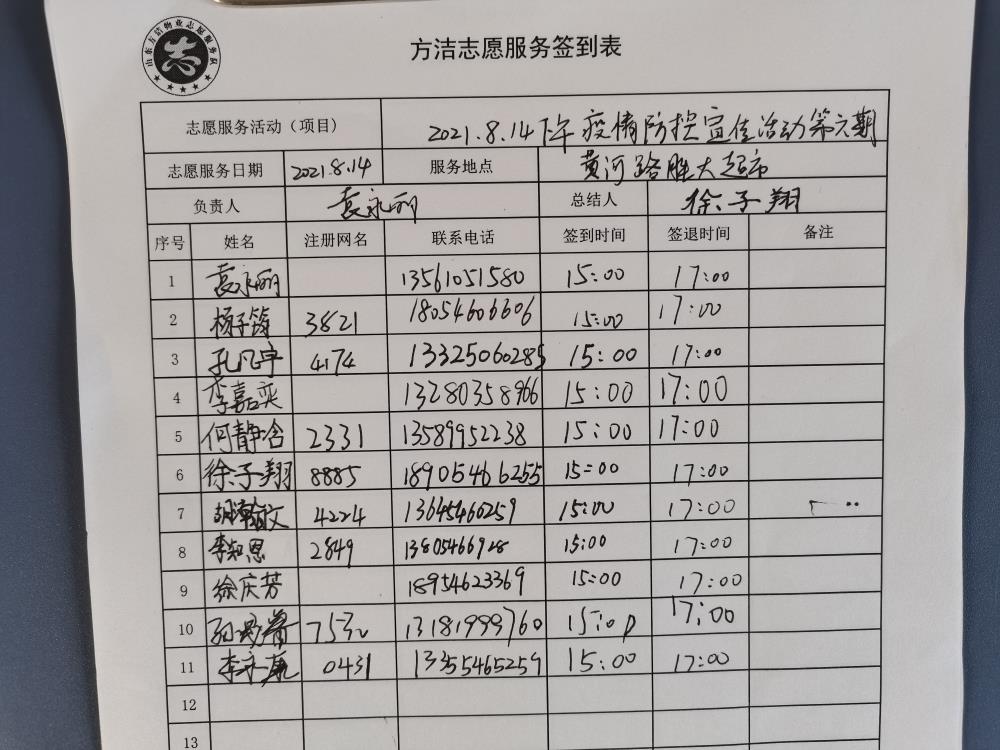 山东方洁物业志愿服务队
志
方洁志愿服务签到表
志愿服务活动（项目） 2021.8.14下午疫情防控宣传活动第六期
志愿服务日期 2021.8.14 服务地点 黄河路胜大超市
负责人 袁永丽 总结人 徐子翔
序号 姓名 注册网名 联系电话 签到时间 签退时间 备注
1 袁永丽 13561051580 15:00 17:00
2 杨子筠 3821 18054606606 15:00 17:00
3 孔凡宇 4174 13325060285 15:00 17:00
4 李嘉奕 13280358966 15:00 17:00
5 何静晗 2331 13589952238 15:00 17:00
6 徐子翔 8885 18905466255 15:00 17:00
7 胡瀚文 4224 13645460259 15:00 17:00
8 李知恩 2849 15:00 17:00
9 徐庆芳 18954623369 15:00 17:00
10 13181999760 15:00 17:00
11 0431 13355465259 15:00 17:00
12
13